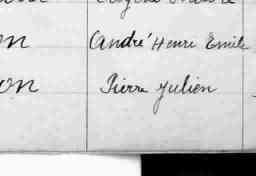 on André Henri Emile
on Pierre Julien